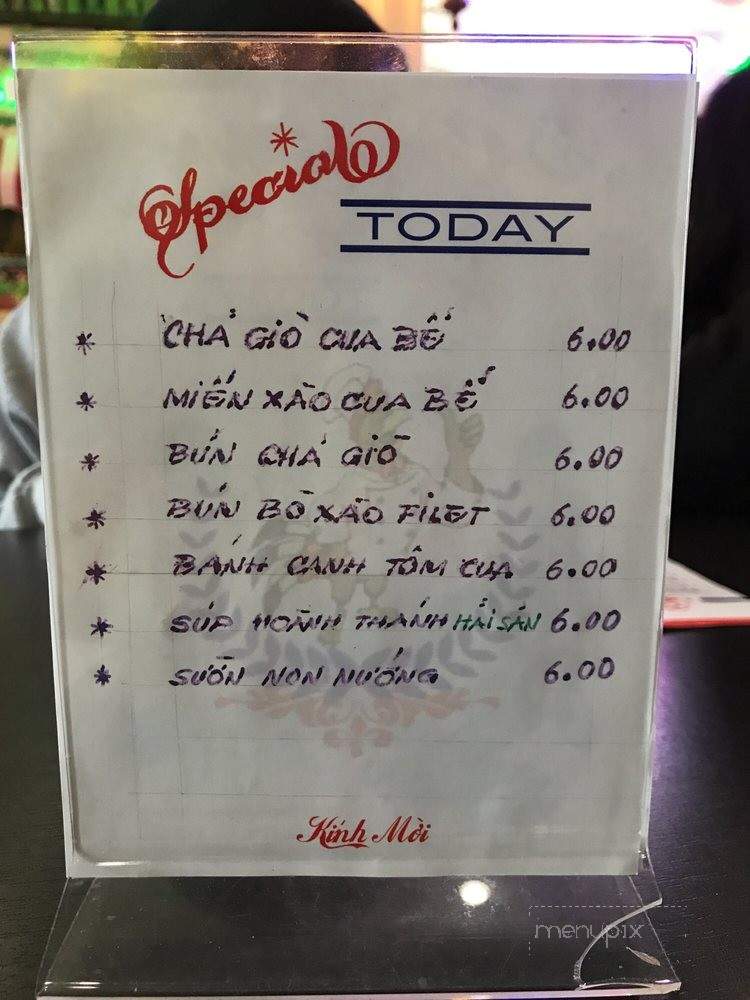 Special
TODAY
* CHẢ GIÒ CUA BỂ 6.00
* MIẾN XÀO CUA BỂ 6.00
* BÚN CHẢ GIÒ 6.00
* BÚN BÒ XÀO FILET 6.00
* BÁNH CANH TÔM CUA 6.00
* SÚP HOÀNH THÁNH HẢI SẢN 6.00
* SƯỜN NON NƯỚNG 6.00
Kính Mời
menupix